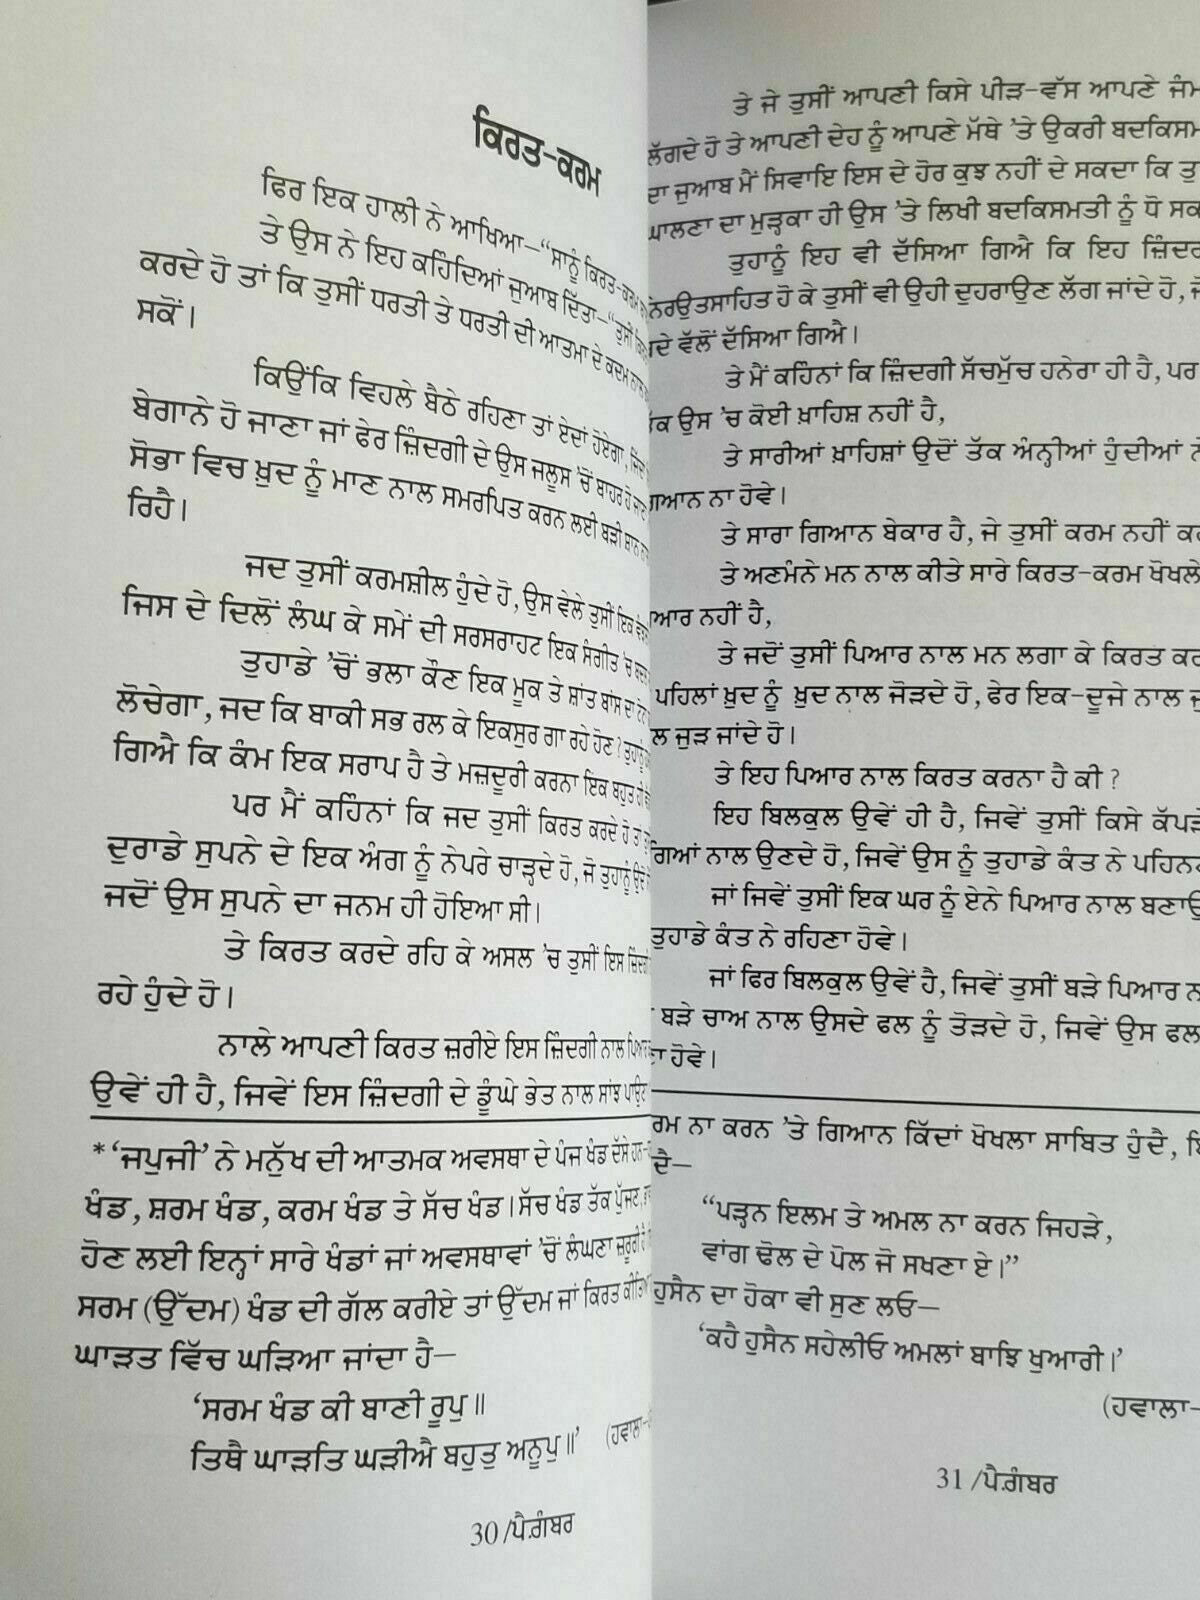 ਕਿਰਤ-ਕਰਮ
ਫਿਰ ਇਕ ਹਾਲੀ ਨੇ ਆਖਿਆ–“ਸਾਨੂੰ ਕਿਰਤ-ਕਰਮ
ਤੇ ਉਸ ਨੇ ਇਹ ਕਹਿੰਦਿਆਂ ਜੁਆਬ ਦਿੱਤਾ–“ਤੁਸੀਂ
ਕਰਦੇ ਹੋ ਤਾਂ ਕਿ ਤੁਸੀਂ ਧਰਤੀ ਤੇ ਧਰਤੀ ਦੀ ਆਤਮਾ ਦੇ ਕਦਮ ਨਾਲ
ਸਕੋਂ।
ਕਿਉਂਕਿ ਵਿਹਲੇ ਬੈਠੇ ਰਹਿਣਾ ਤਾਂ ਏਦਾਂ ਹੋਏਗਾ, ਜਿਦਾਂ
ਬੇਗਾਨੇ ਹੋ ਜਾਣਾ ਜਾਂ ਫੇਰ ਜ਼ਿੰਦਗੀ ਦੇ ਉਸ ਜਲੂਸ ’ਚੋਂ ਬਾਹਰ ਹੋ ਜਾਣਾ
ਸੋਭਾ ਵਿਚ ਖ਼ੁਦ ਨੂੰ ਮਾਣ ਨਾਲ ਸਮਰਪਿਤ ਕਰਨ ਲਈ ਬੜੀ ਸ਼ਾਨ ਨਾਲ
ਰਿਹੈ।
ਜਦ ਤੁਸੀਂ ਕਰਮਸ਼ੀਲ ਹੁੰਦੇ ਹੋ, ਉਸ ਵੇਲੇ ਤੁਸੀਂ ਇਕ
ਜਿਸ ਦੇ ਦਿਲੋਂ ਲੰਘ ਕੇ ਸਮੇਂ ਦੀ ਸਰਸਰਾਹਟ ਇਕ ਸੰਗੀਤ ’ਚ ਬਦਲ
ਤੁਹਾਡੇ ’ਚੋਂ ਭਲਾ ਕੌਣ ਇਕ ਮੂਕ ਤੇ ਸ਼ਾਂਤ ਬਾਂਸ ਦਾ
ਲੋਚੇਗਾ, ਜਦ ਕਿ ਬਾਕੀ ਸਭ ਰਲ ਕੇ ਇਕਸੁਰ ਗਾ ਰਹੇ ਹੋਣ? ਤੁਹਾਨੂੰ
ਗਿਐ ਕਿ ਕੰਮ ਇਕ ਸਰਾਪ ਹੈ ਤੇ ਮਜ਼ਦੂਰੀ ਕਰਨਾ ਇਕ ਬਹੁਤ ਹੀ
ਪਰ ਮੈਂ ਕਹਿੰਨਾਂ ਕਿ ਜਦ ਤੁਸੀਂ ਕਿਰਤ ਕਰਦੇ ਹੋ ਤਾਂ
ਦੁਰਾਡੇ ਸੁਪਨੇ ਦੇ ਇਕ ਅੰਗ ਨੂੰ ਨੇਪਰੇ ਚਾੜ੍ਹਦੇ ਹੋ, ਜੋ ਤੁਹਾਨੂੰ ਉਦੋਂ
ਜਦੋਂ ਉਸ ਸੁਪਨੇ ਦਾ ਜਨਮ ਹੀ ਹੋਇਆ ਸੀ।
ਤੇ ਕਿਰਤ ਕਰਦੇ ਰਹਿ ਕੇ ਅਸਲ ’ਚ ਤੁਸੀਂ ਇਸ ਜ਼ਿੰਦਗੀ
ਰਹੇ ਹੁੰਦੇ ਹੋ।
ਨਾਲੇ ਆਪਣੀ ਕਿਰਤ ਜ਼ਰੀਏ ਇਸ ਜ਼ਿੰਦਗੀ ਨਾਲ ਪਿਆਰ
ਉਵੇਂ ਹੀ ਹੈ, ਜਿਵੇਂ ਇਸ ਜ਼ਿੰਦਗੀ ਦੇ ਡੂੰਘੇ ਭੇਤ ਨਾਲ ਸਾਂਝ ਪਾਉਣ
*‘ਜਪੁਜੀ’ ਨੇ ਮਨੁੱਖ ਦੀ ਆਤਮਕ ਅਵਸਥਾ ਦੇ ਪੰਜ ਖੰਡ ਦੱਸੇ ਹਨ–
ਖੰਡ, ਸ਼ਰਮ ਖੰਡ, ਕਰਮ ਖੰਡ ਤੇ ਸੱਚ ਖੰਡ। ਸੱਚ ਖੰਡ ਤੱਕ ਪੁੱਜਣ,
ਹੋਣ ਲਈ ਇਨ੍ਹਾਂ ਸਾਰੇ ਖੰਡਾਂ ਜਾਂ ਅਵਸਥਾਵਾਂ ’ਚੋਂ ਲੰਘਣਾ ਜ਼ਰੂਰੀ ਹੈ
ਸਰਮ (ਉੱਦਮ) ਖੰਡ ਦੀ ਗੱਲ ਕਰੀਏ ਤਾਂ ਉੱਦਮ ਜਾਂ ਕਿਰਤ ਕੀਤਿਆਂ
ਘਾੜਤ ਵਿੱਚ ਘੜਿਆ ਜਾਂਦਾ ਹੈ–
‘ਸਰਮ ਖੰਡ ਕੀ ਬਾਣੀ ਰੂਪੁ॥
ਤਿਥੈ ਘਾੜਤਿ ਘੜੀਐ ਬਹੁਤੁ ਅਨੂਪੁ॥’ (ਹਵਾਲਾ–
30/ਪੈਗ਼ੰਬਰ
ਤੇ ਜੇ ਤੁਸੀਂ ਆਪਣੀ ਕਿਸੇ ਪੀੜ-ਵੱਸ ਆਪਣੇ ਜੰਮ
ਲੱਗਦੇ ਹੋ ਤੇ ਆਪਣੀ ਦੇਹ ਨੂੰ ਆਪਣੇ ਮੱਥੇ ’ਤੇ ਉਕਰੀ ਬਦਕਿਸਮ
ਦਾ ਜੁਆਬ ਮੈਂ ਸਿਵਾਇ ਇਸ ਦੇ ਹੋਰ ਕੁਝ ਨਹੀਂ ਦੇ ਸਕਦਾ ਕਿ ਤੁ
ਘਾਲਣਾ ਦਾ ਮੁੜ੍ਹਕਾ ਹੀ ਉਸ ’ਤੇ ਲਿਖੀ ਬਦਕਿਸਮਤੀ ਨੂੰ ਧੋ ਸਕ
ਤੁਹਾਨੂੰ ਇਹ ਵੀ ਦੱਸਿਆ ਗਿਐ ਕਿ ਇਹ ਜ਼ਿੰਦਗ
ਨਿਰਉਤਸਾਹਿਤ ਹੋ ਕੇ ਤੁਸੀਂ ਵੀ ਉਹੀ ਦੁਹਰਾਉਣ ਲੱਗ ਜਾਂਦੇ ਹੋ,
ਦੇ ਵੱਲੋਂ ਦੱਸਿਆ ਗਿਐ।
ਤੇ ਮੈਂ ਕਹਿੰਨਾਂ ਕਿ ਜ਼ਿੰਦਗੀ ਸੱਚਮੁੱਚ ਹਨੇਰਾ ਹੀ ਹੈ, ਪਰ
ਤੱਕ ਉਸ ’ਚ ਕੋਈ ਖ਼ਾਹਿਸ਼ ਨਹੀਂ ਹੈ,
ਤੇ ਸਾਰੀਆਂ ਖ਼ਾਹਿਸ਼ਾਂ ਉਦੋਂ ਤੱਕ ਅੰਨ੍ਹੀਆਂ ਹੁੰਦੀਆਂ ਨੇ
ਗਿਆਨ ਨਾ ਹੋਵੇ।
ਤੇ ਸਾਰਾ ਗਿਆਨ ਬੇਕਾਰ ਹੈ, ਜੇ ਤੁਸੀਂ ਕਰਮ ਨਹੀਂ ਕਰ
ਤੇ ਅਣਮੰਨੇ ਮਨ ਨਾਲ ਕੀਤੇ ਸਾਰੇ ਕਿਰਤ-ਕਰਮ ਖੋਖਲੇ
ਪਿਆਰ ਨਹੀਂ ਹੈ,
ਤੇ ਜਦੋਂ ਤੁਸੀਂ ਪਿਆਰ ਨਾਲ ਮਨ ਲਗਾ ਕੇ ਕਿਰਤ ਕਰ
ਪਹਿਲਾਂ ਖ਼ੁਦ ਨੂੰ ਖ਼ੁਦ ਨਾਲ ਜੋੜਦੇ ਹੋ, ਫੇਰ ਇਕ-ਦੂਜੇ ਨਾਲ ਜੁ
ਲ ਜੁੜ ਜਾਂਦੇ ਹੋ।
ਤੇ ਇਹ ਪਿਆਰ ਨਾਲ ਕਿਰਤ ਕਰਨਾ ਹੈ ਕੀ ?
ਇਹ ਬਿਲਕੁਲ ਉਵੇਂ ਹੀ ਹੈ, ਜਿਵੇਂ ਤੁਸੀਂ ਕਿਸੇ ਕੱਪੜੇ
ਗਿਆਂ ਨਾਲ ਉਣਦੇ ਹੋ, ਜਿਵੇਂ ਉਸ ਨੂੰ ਤੁਹਾਡੇ ਕੰਤ ਨੇ ਪਹਿਨਣ
ਜਾਂ ਜਿਵੇਂ ਤੁਸੀਂ ਇਕ ਘਰ ਨੂੰ ਏਨੇ ਪਿਆਰ ਨਾਲ ਬਣਾਉ
ਤੁਹਾਡੇ ਕੰਤ ਨੇ ਰਹਿਣਾ ਹੋਵੇ।
ਜਾਂ ਫਿਰ ਬਿਲਕੁਲ ਉਵੇਂ ਹੈ, ਜਿਵੇਂ ਤੁਸੀਂ ਬੜੇ ਪਿਆਰ ਨਾ
ਬੜੇ ਚਾਅ ਨਾਲ ਉਸਦੇ ਫਲ ਨੂੰ ਤੋੜਦੇ ਹੋ, ਜਿਵੇਂ ਉਸ ਫਲ
ਹੋਵੇ।
ਰਮ ਨਾ ਕਰਨ ’ਤੇ ਗਿਆਨ ਕਿੱਦਾਂ ਖੋਖਲਾ ਸਾਬਿਤ ਹੁੰਦੈ,
ਦੈ–
“ਪੜ੍ਹਨ ਇਲਮ ਤੇ ਅਮਲ ਨਾ ਕਰਨ ਜਿਹੜੇ,
ਵਾਂਗ ਢੋਲ ਦੇ ਪੋਲ ਜੋ ਸਖਣਾ ਏ।”
ਹੁਸੈਨ ਦਾ ਹੋਕਾ ਵੀ ਸੁਣ ਲਓ–
‘ਕਹੈ ਹੁਸੈਨ ਸਹੇਲੀਓ ਅਮਲਾਂ ਬਾਝਿ ਖੁਆਰੀ।’
(ਹਵਾਲਾ–
31/ਪੈਗ਼ੰਬਰ